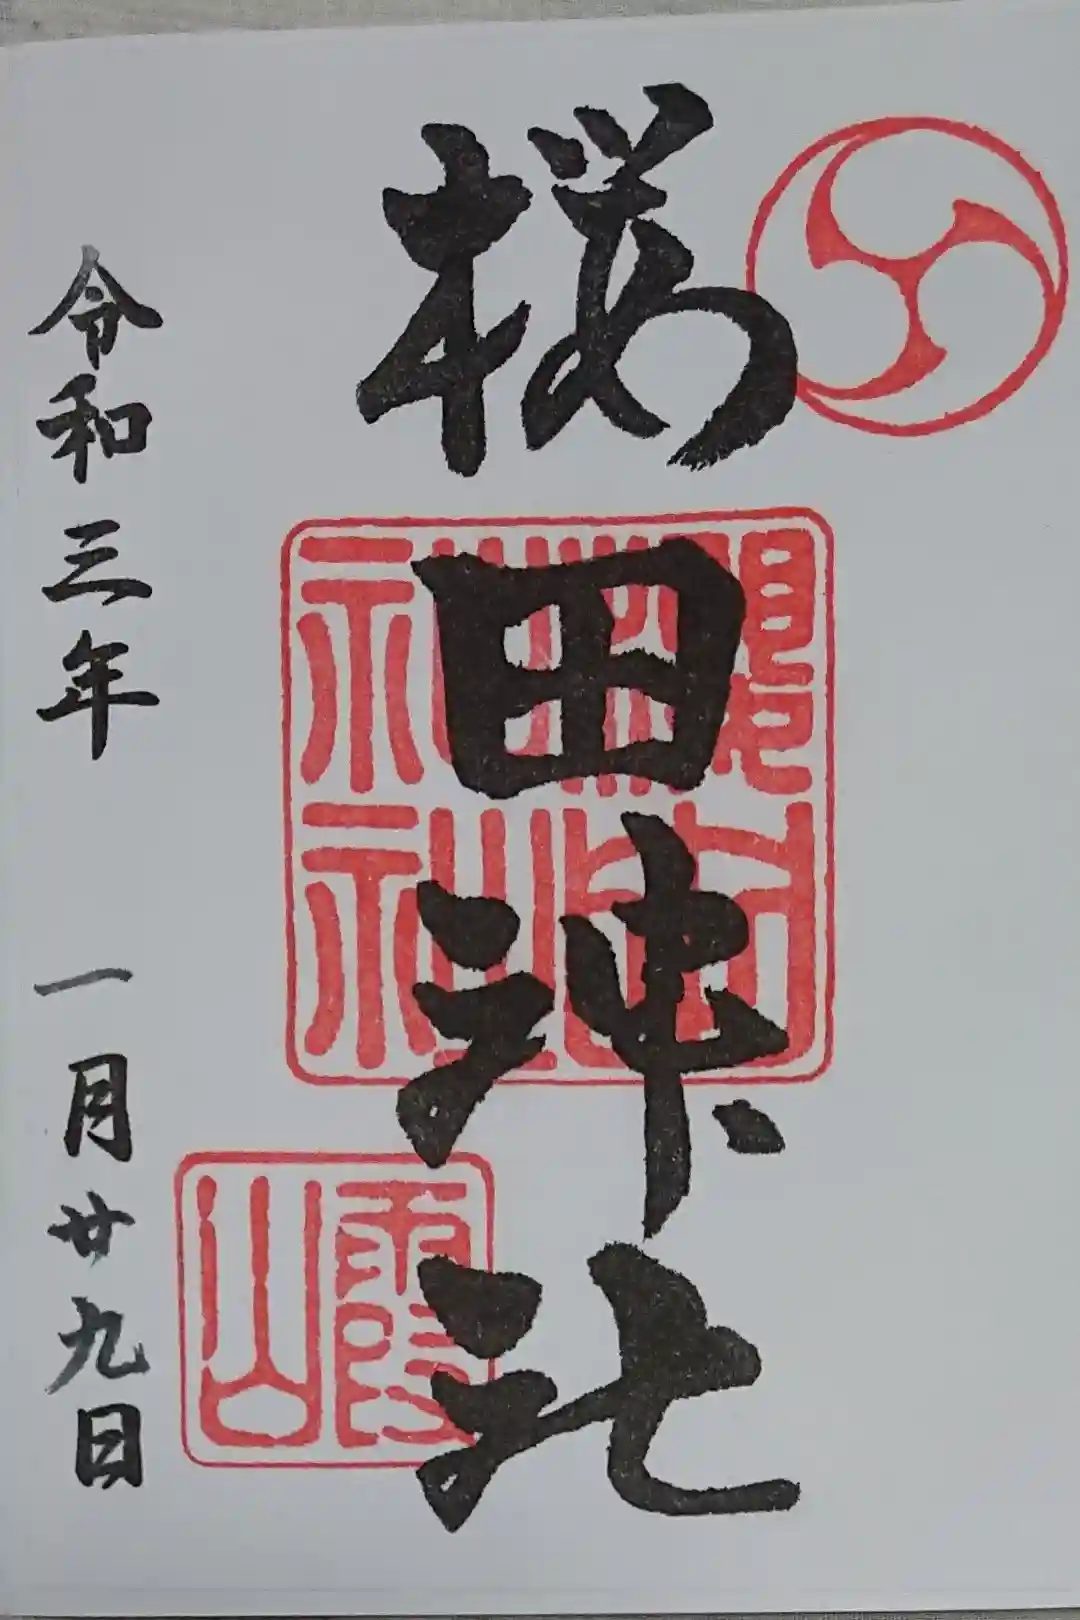 桜田神社
霞山
令和三年 一月廿九日